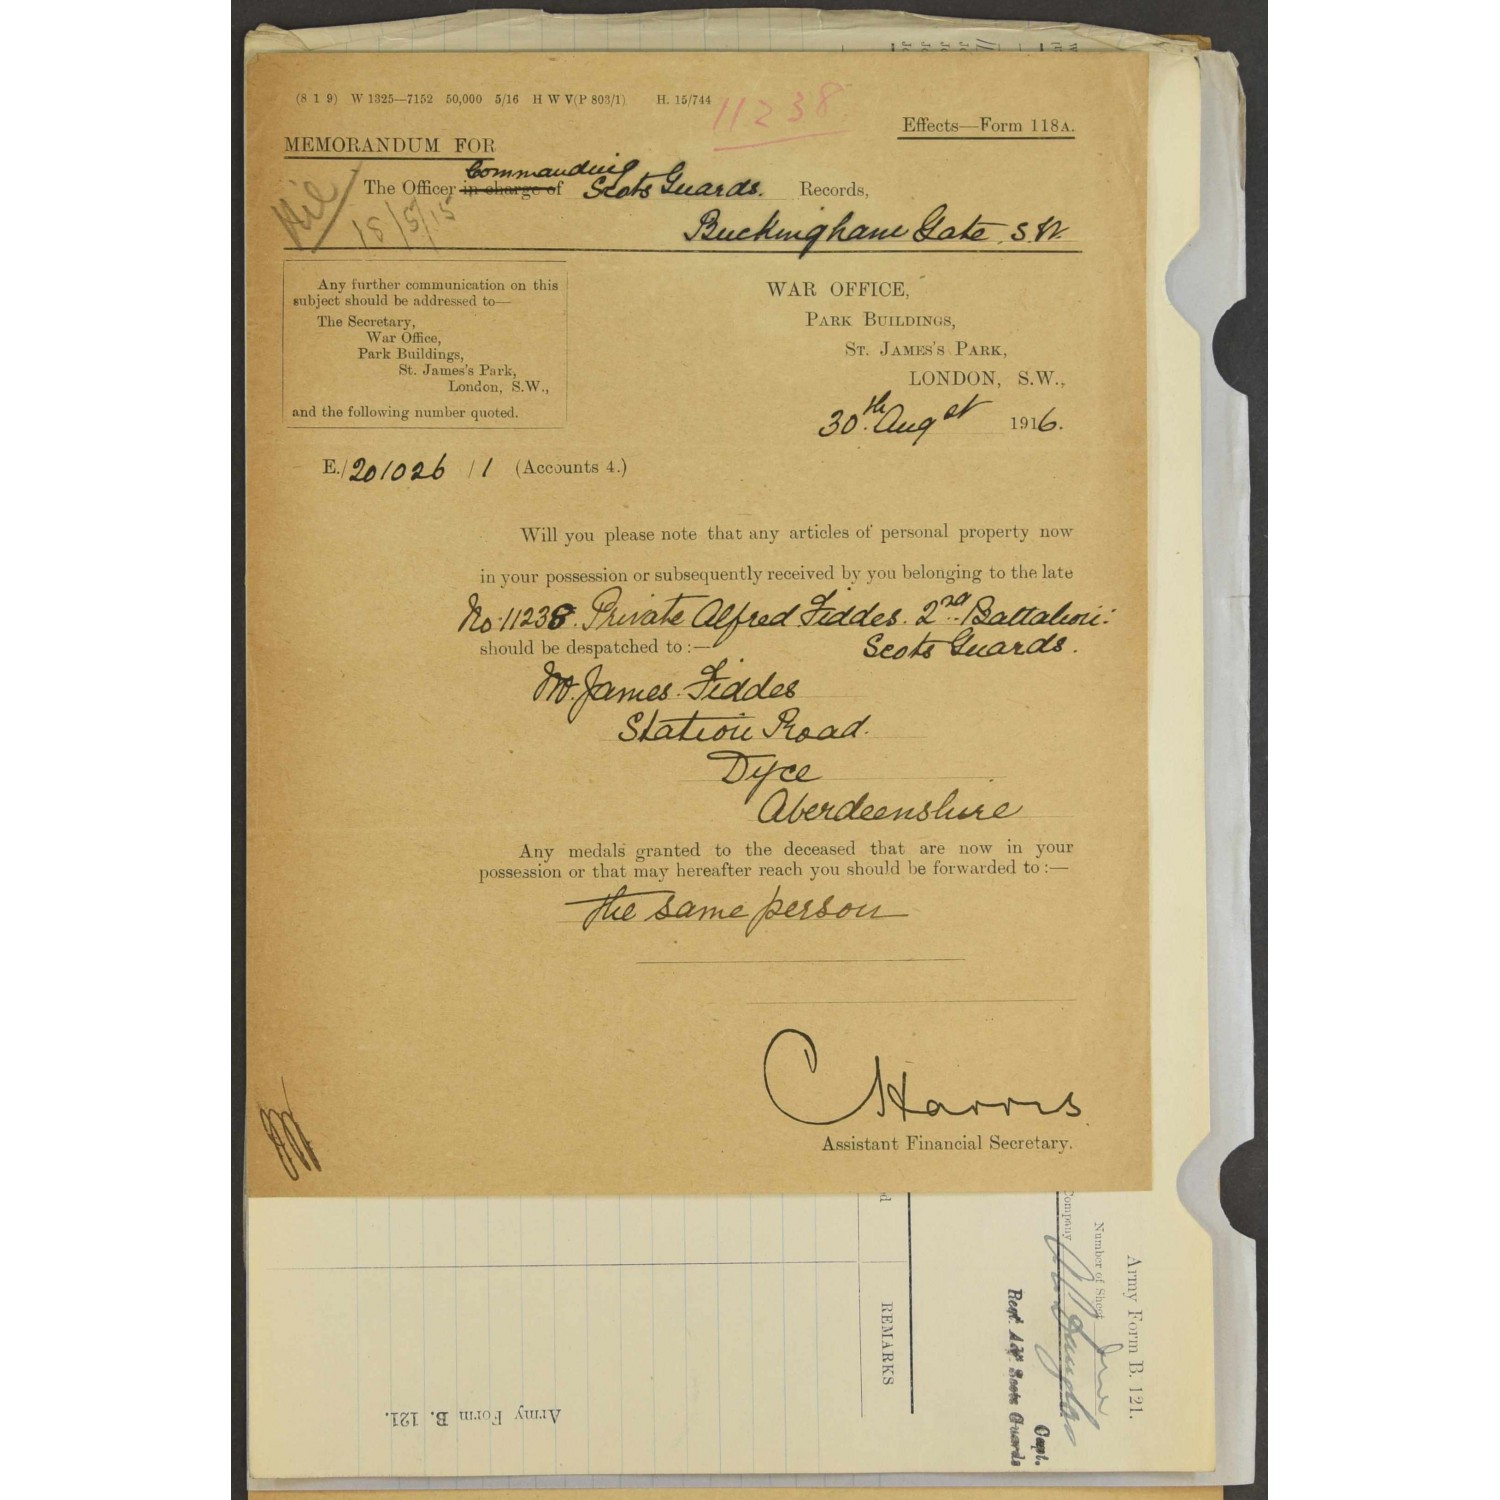 (8 1 9) W 1325—7152 50,000 5/16 H W V(P 803/1) H. 15/744
11238
Effects—Form 118A.
MEMORANDUM FOR
Commanding
The Officer in charge of Scots Guards. Records,
Buckingham Gate, S.W.
Nil
15/5/15
Any further communication on this
subject should be addressed to—
The Secretary,
War Office,
Park Buildings,
St. James's Park,
London, S.W.,
and the following number quoted.
WAR OFFICE,
PARK BUILDINGS,
ST. JAMES'S PARK,
LONDON, S.W.,
30th Augst 1916.
E./201026/1 (Accounts 4.)
Will you please note that any articles of personal property now
in your possession or subsequently received by you belonging to the late
No. 11238. Private Alfred Fiddes. 2nd Battalion:
should be despatched to :— Scots Guards.
Mr. James Fiddes
Station Road.
Dyce
Aberdeenshire
Any medals granted to the deceased that are now in your
possession or that may hereafter reach you should be forwarded to :—
the same person
C Harris
Assistant Financial Secretary.
Army Form B. 121.
Number of Sheet
Company
Capt.
Regt. Adjt. Scots Guards
REMARKS
Army Form B. 121.